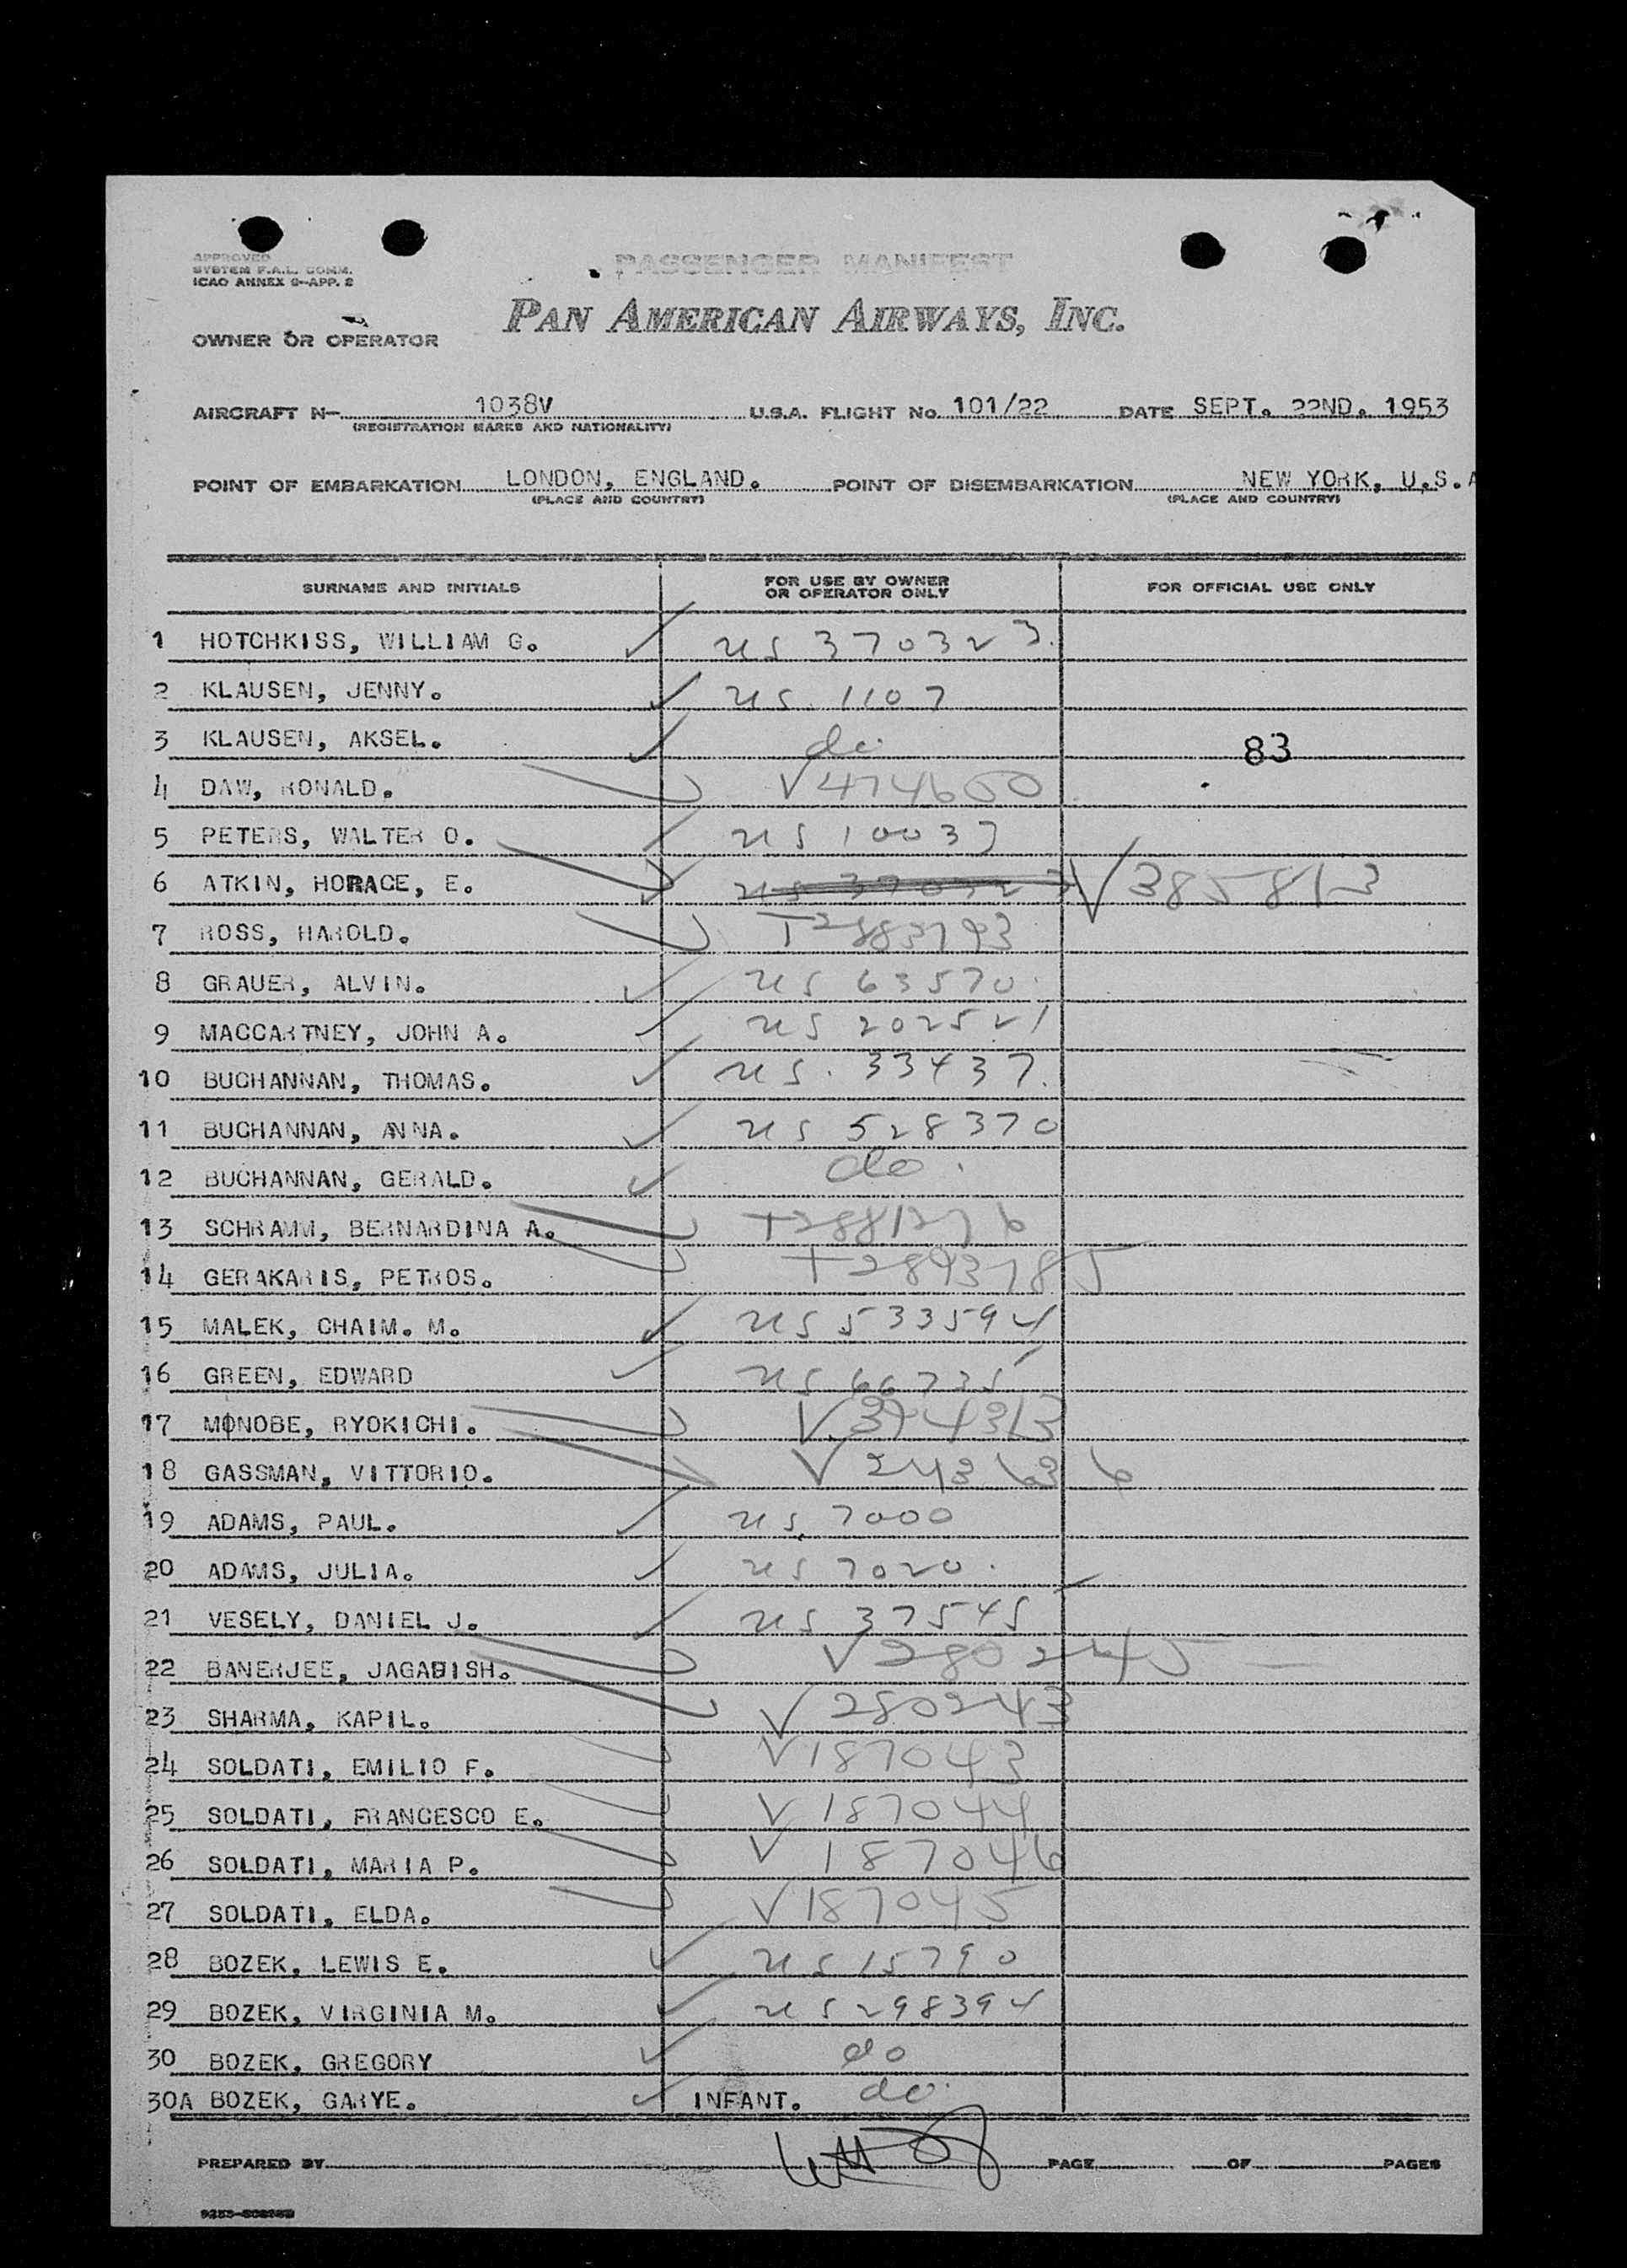 APPROVED
SYSTEM F.A.L. COMM.
ICAO ANNEX 9-APP. 2
PASSENGER MANIFEST
PAN AMERICAN AIRWAYS, INC.
OWNER OR OPERATOR
AIRCRAFT N- 1038V U.S.A. FLIGHT No. 101/22 DATE SEPT. 22ND. 1953
(REGISTRATION MARKS AND NATIONALITY)
POINT OF EMBARKATION LONDON, ENGLAND. POINT OF DISEMBARKATION NEW YORK, U.S.A
(PLACE AND COUNTRY) (PLACE AND COUNTRY)
SURNAME AND INITIALS FOR USE BY OWNER OR OPERATOR ONLY FOR OFFICIAL USE ONLY
1 HOTCHKISS, WILLIAM G. ✓ US 370323.
2 KLAUSEN, JENNY. ✓ US. 1107
3 KLAUSEN, AKSEL. ✓ do. 83
4 DAW, RONALD. V474600
5 PETERS, WALTER O. ✓ US 10037
6 ATKIN, HORACE, E. ✓ US 370323 V385813
7 ROSS, HAROLD. T2883793
8 GRAUER, ALVIN. ✓ US 63570.
9 MACCARTNEY, JOHN A. ✓ US 202521
10 BUCHANNAN, THOMAS. ✓ US. 33437.
11 BUCHANNAN, ANNA. ✓ US 528370
12 BUCHANNAN, GERALD. ✓ do.
13 SCHRAMM, BERNARDINA A. T2881276
14 GERAKARIS, PETROS. T2893785
15 MALEK, CHAIM. M. ✓ US 533594
16 GREEN, EDWARD ✓ US 66735
17 MONOBE, RYOKICHI. V374313
18 GASSMAN, VITTORIO. V243636
19 ADAMS, PAUL. ✓ US. 7000
20 ADAMS, JULIA. ✓ US 7020.
21 VESELY, DANIEL J. ✓ US 37545
22 BANERJEE, JAGADISH. V280245
23 SHARMA, KAPIL. V280243
24 SOLDATI, EMILIO F. V187043
25 SOLDATI, FRANCESCO E. V187044
26 SOLDATI, MARIA P. V187046
27 SOLDATI, ELDA. V187045
28 BOZEK, LEWIS E. ✓ US 15790
29 BOZEK, VIRGINIA M. ✓ US 298394
30 BOZEK, GREGORY ✓ do
30A BOZEK, GARYE. ✓ INFANT. do.
PREPARED BY PAGE OF PAGES